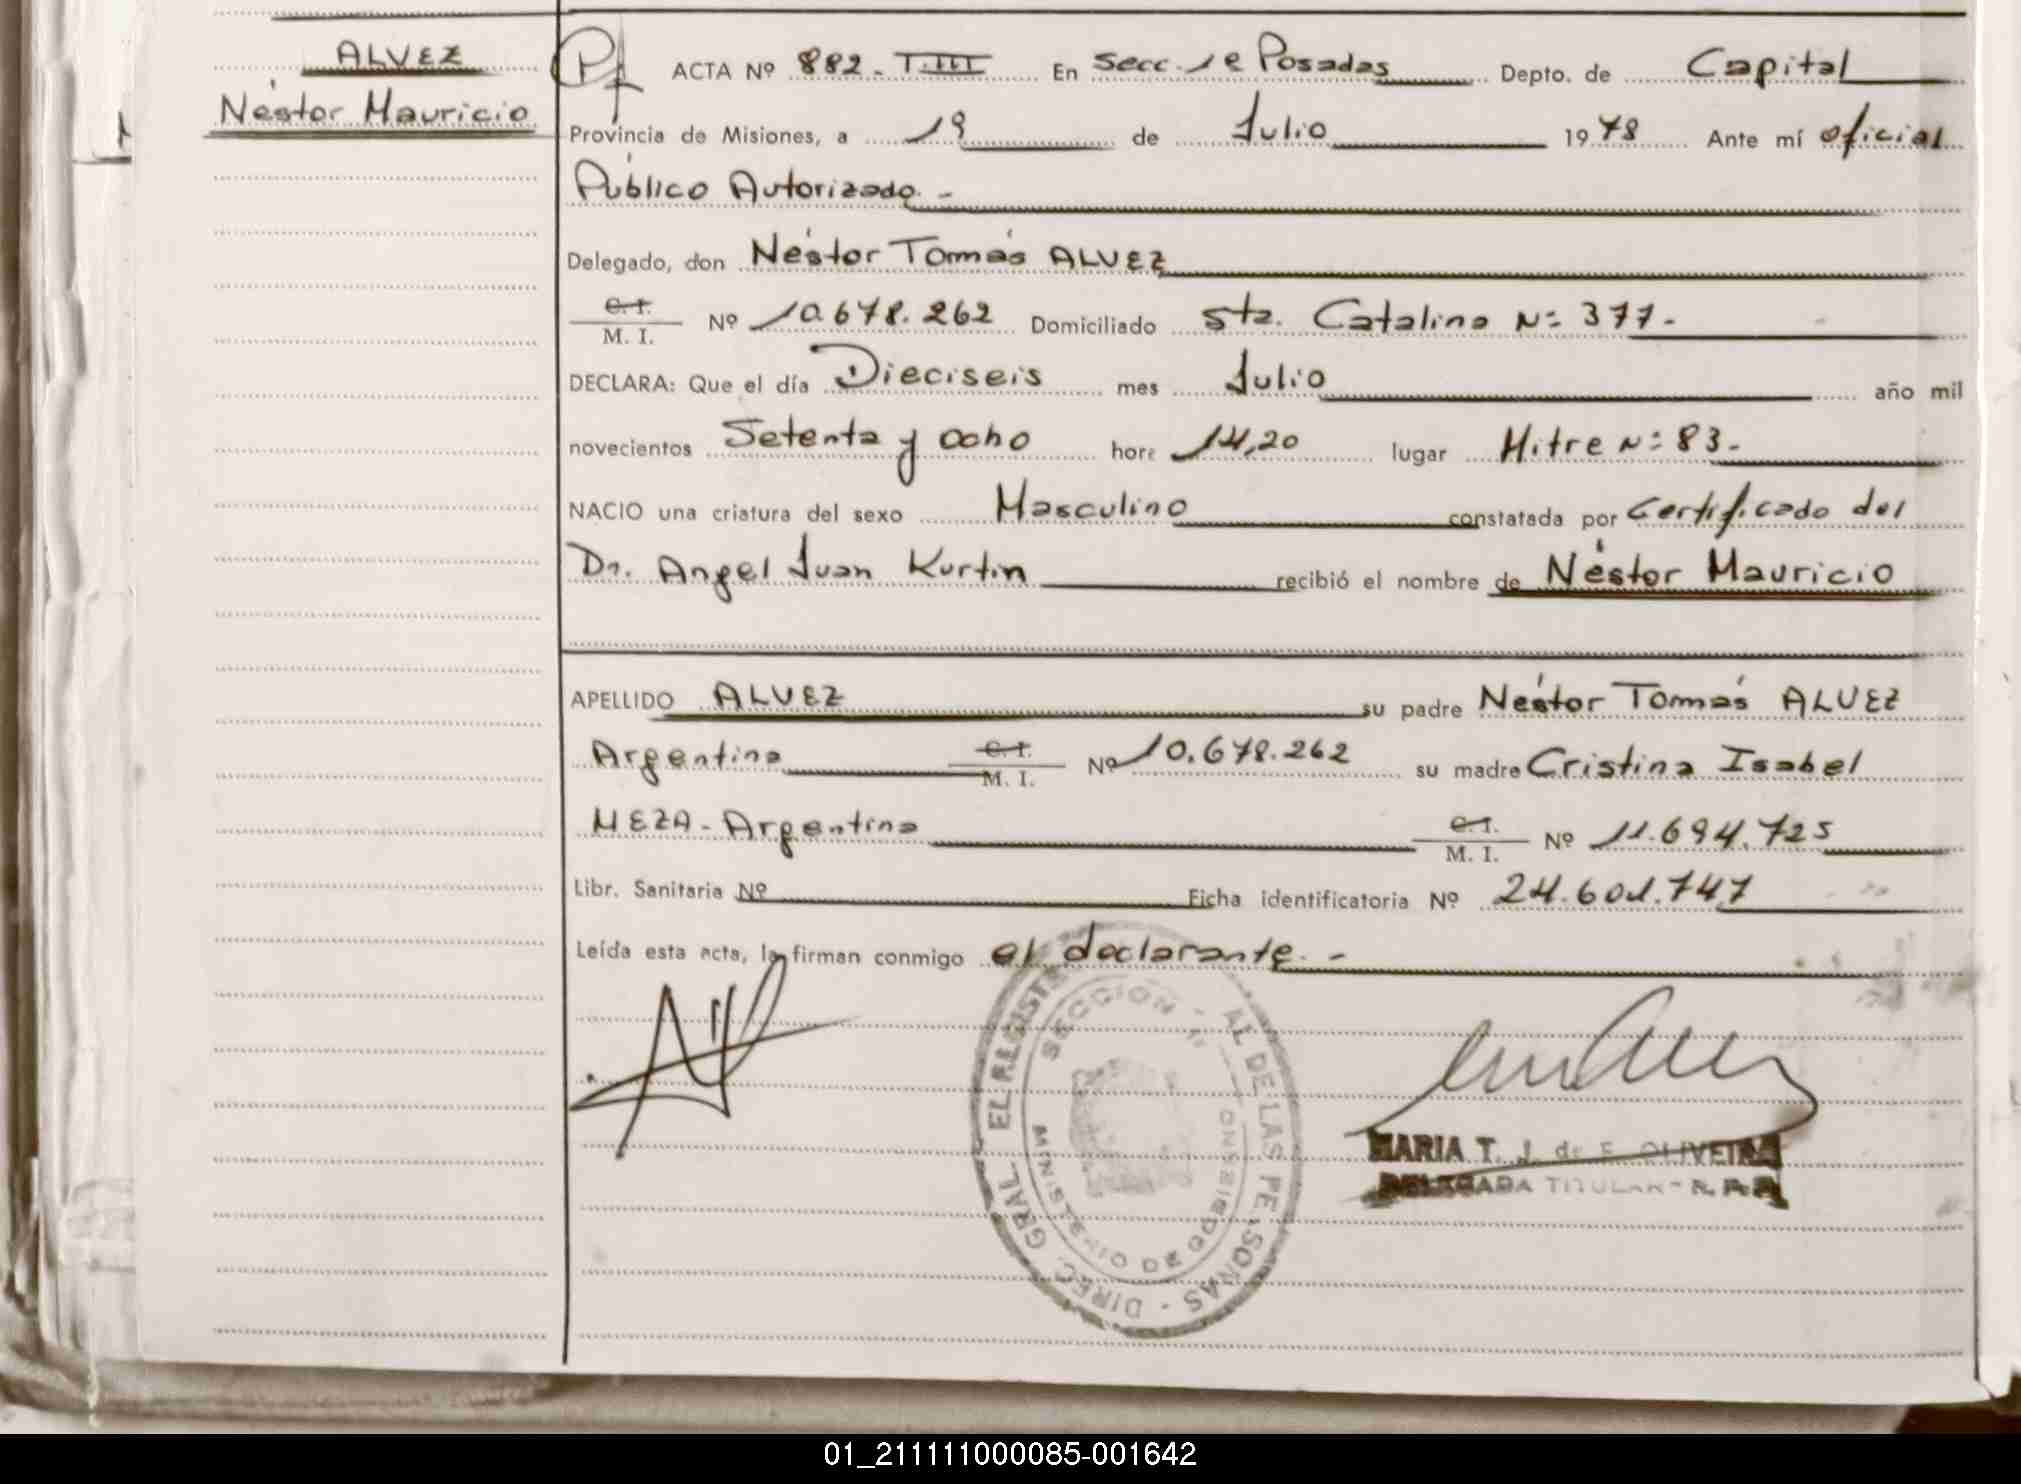 ALVEZ
Néstor Mauricio
ACTA Nº 882 - T. III En Secc. 1e Posadas Depto. de Capital
Provincia de Misiones, a 19 de Julio 1978 Ante mí oficial
Público Autorizado. -
Delegado, don Néstor Tomás ALVEZ
C. I.
M. I. Nº 10.678.262 Domiciliado Sta. Catalina N: 377.-
DECLARA: Que el día Dieciseis mes Julio año mil
novecientos Setenta y ocho hora 14,20 lugar Mitre N: 83.-
NACIO una criatura del sexo Masculino constatada por Certificado del
Dr. Angel Juan Kurtin recibió el nombre de Néstor Mauricio
APELLIDO ALVEZ su padre Néstor Tomás ALVEZ
Argentino C. I. M. I. Nº 10.678.262 su madre Cristina Isabel
MEZA - Argentina C. I. M. I. Nº 11.694.725
Libr. Sanitaria Nº Ficha identificatoria Nº 24.601.747
Leída esta acta, la firman conmigo el declarante. -
SECCION 1ª
AL DE LAS PERSONAS - DIREC. GRAL. EL REGIST
MARIA T. J. de F. OLIVEIRA
DELEGADA TITULAR - R.P.P.
01_211111000085-001642